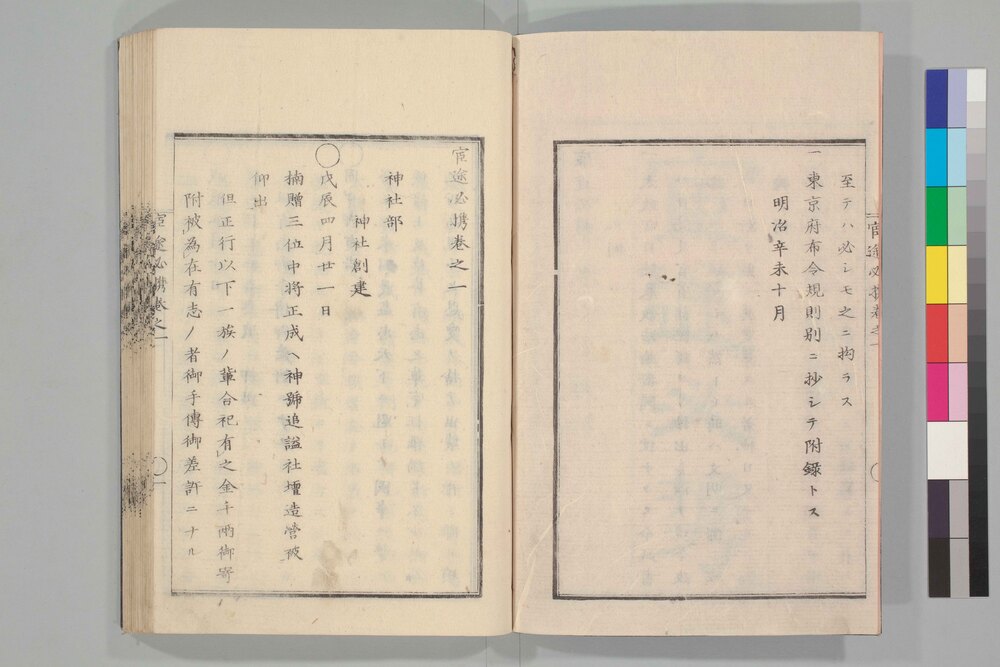 至テハ必シモ之ニ拘ラス
一 東京府布令規則別ニ抄シテ附録トス
明治辛未十月
宦途必携巻之一
神社部
神社創建
〇戊辰四月廿一日
楠贈三位中将正成ヘ神號追謚社壇造営被
仰出
但正行以下一族ノ輩合祀有之金千両御寄
附被為在有志ノ者御手傳御差許ニナル
宦途必携巻之一
〇一